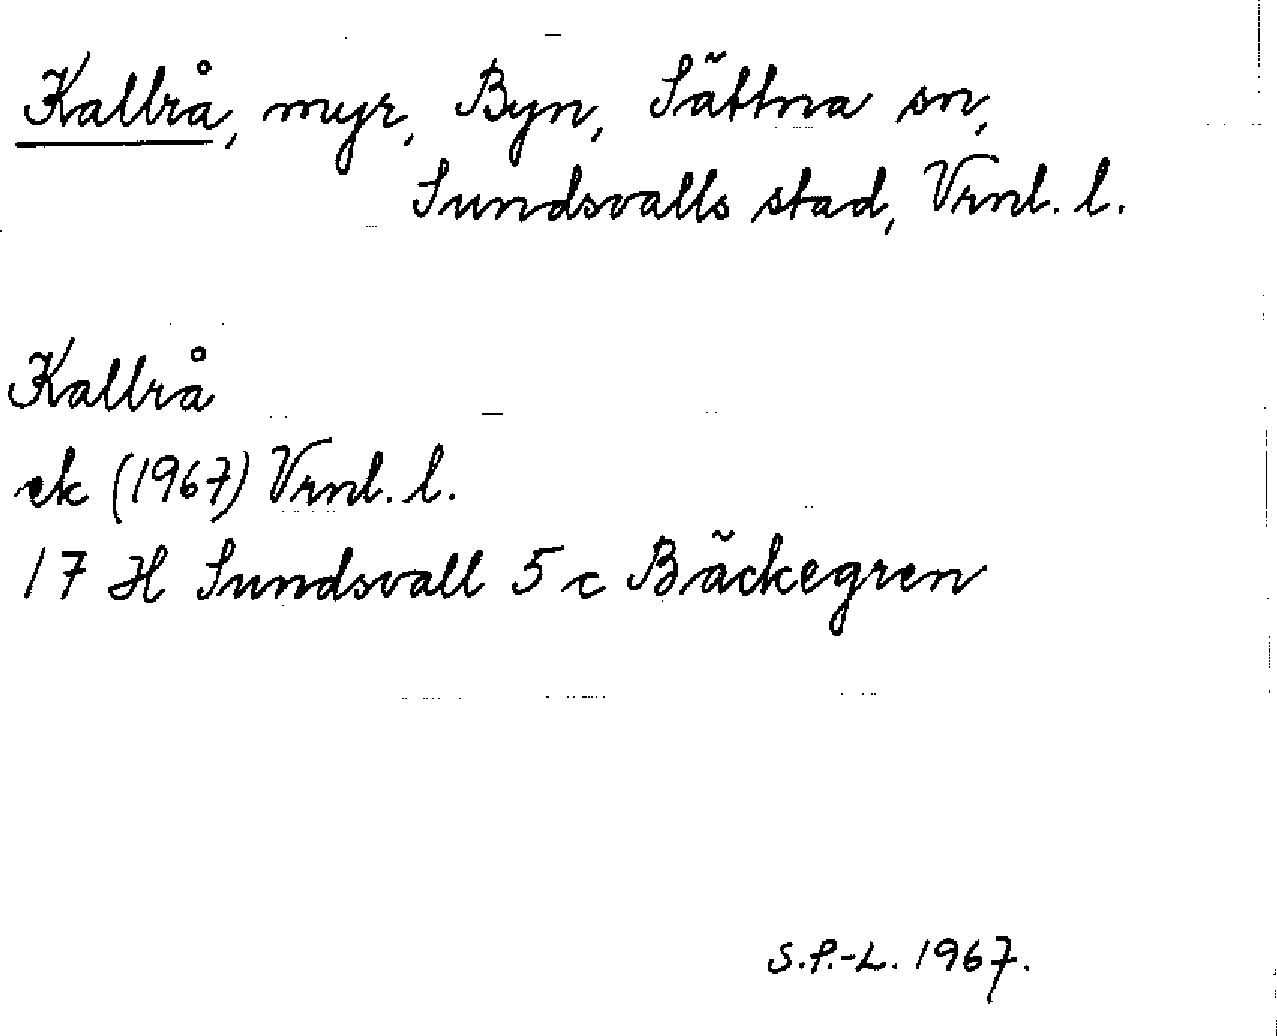 Kallrå, myr, Byn, Sättna sn,
Sundsvalls stad, Vrnl. l.
Kallrå
ek (1967) Vrnl. l.
17 H Sundsvall 5 c Bäckegren
S.P.-L. 1967.